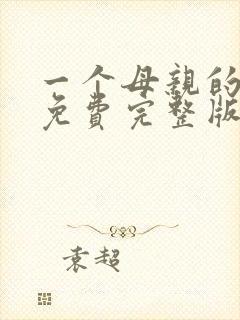 一个母亲的
免费完整版
袁超